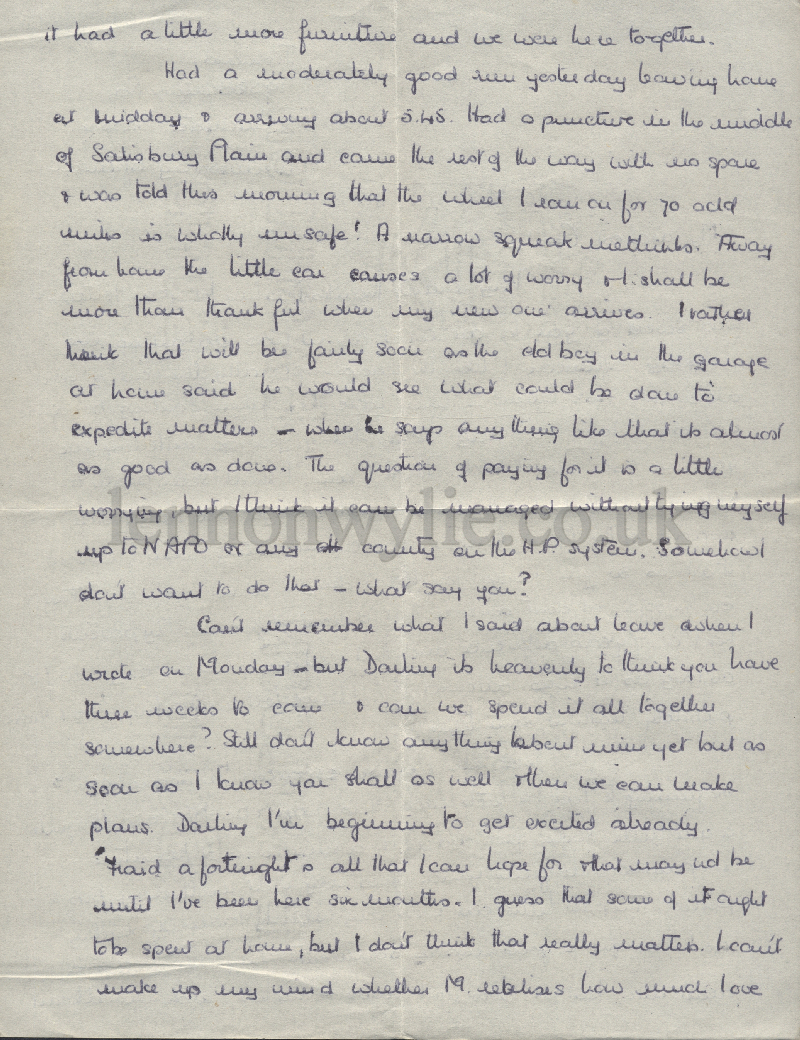 it had a little more furniture and we were here together.
Had a moderately good run yesterday leaving home
at midday & arriving about 5.45. Had a puncture in the middle
of Salisbury Plain and came the rest of the way with no spare
& was told this morning that the wheel I ran on for 70 odd
miles is wholly unsafe! A narrow squeak methinks. Away
from home the little car causes a lot of worry & I shall be
more than thankful when my new one arrives. I rather
think that will be fairly soon as the old boy in the garage
at home said he would see what could be done to
expedite matters – when he says anything like that its almost
as good as done. The question of paying for it is a little
worrying but I think it can be managed without tying myself
up to N.A.P.O or any county on the H.P. system. Somehow I
don't want to do that – what say you?
Can't remember what I said about leave when I
wrote on Monday – but Darling its heavenly to think you have
three weeks to come & can we spend it all together
somewhere? Still don't know anything about mine yet but as
soon as I know you shall as well & then we can make
plans. Darling I'm beginning to get excited already.
'Fraid a fortnight is all that I can hope for & that may not be
until I've been here six months. I guess that some of it ought
to be spent at home, but I don't think that really matters. I can't
make up my mind whether M. realises how much I love
lennonwylie.co.uk